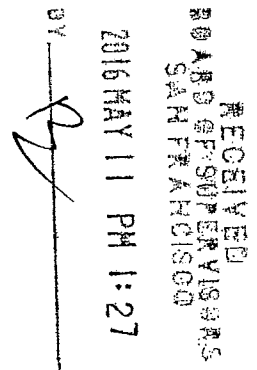 RECEIVED
BOARD OF SUPERVISORS
SAN FRANCISCO
2016 MAY 11 PM 1:27
BY